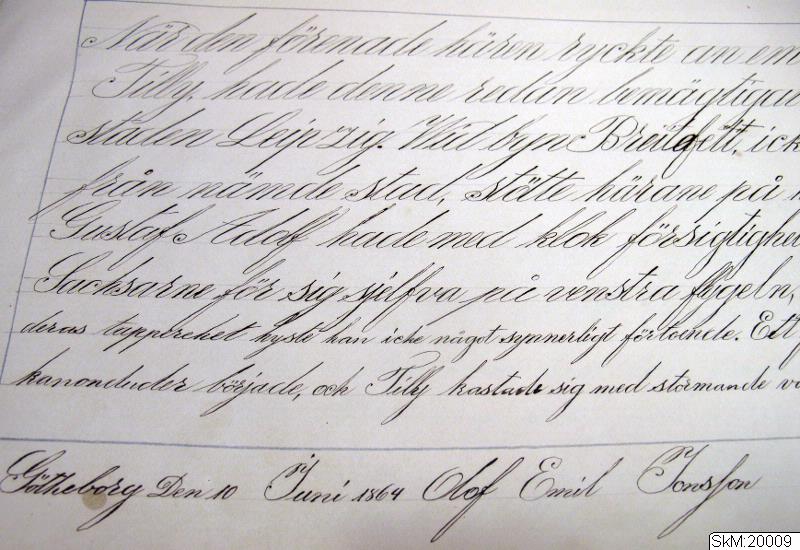 När den förenade hären ryckte an em
Tilly, hade denne redan bemägtigat
staden Leipzig. Wid byn Breitefelt, ick
från nämde stad, stötte härane på
Gustaf Adolf hade med klok försigtighet
Sachsarne för sig sjelfva på venstra flygeln,
deras tapperhet hyste han icke något synnerligt förtoende. Ett
kanonduder började, och Tilly kastade sig med stormande
Götheborg Den 10 Juni 1864 Olof Emil Jonsson
SkM:20009